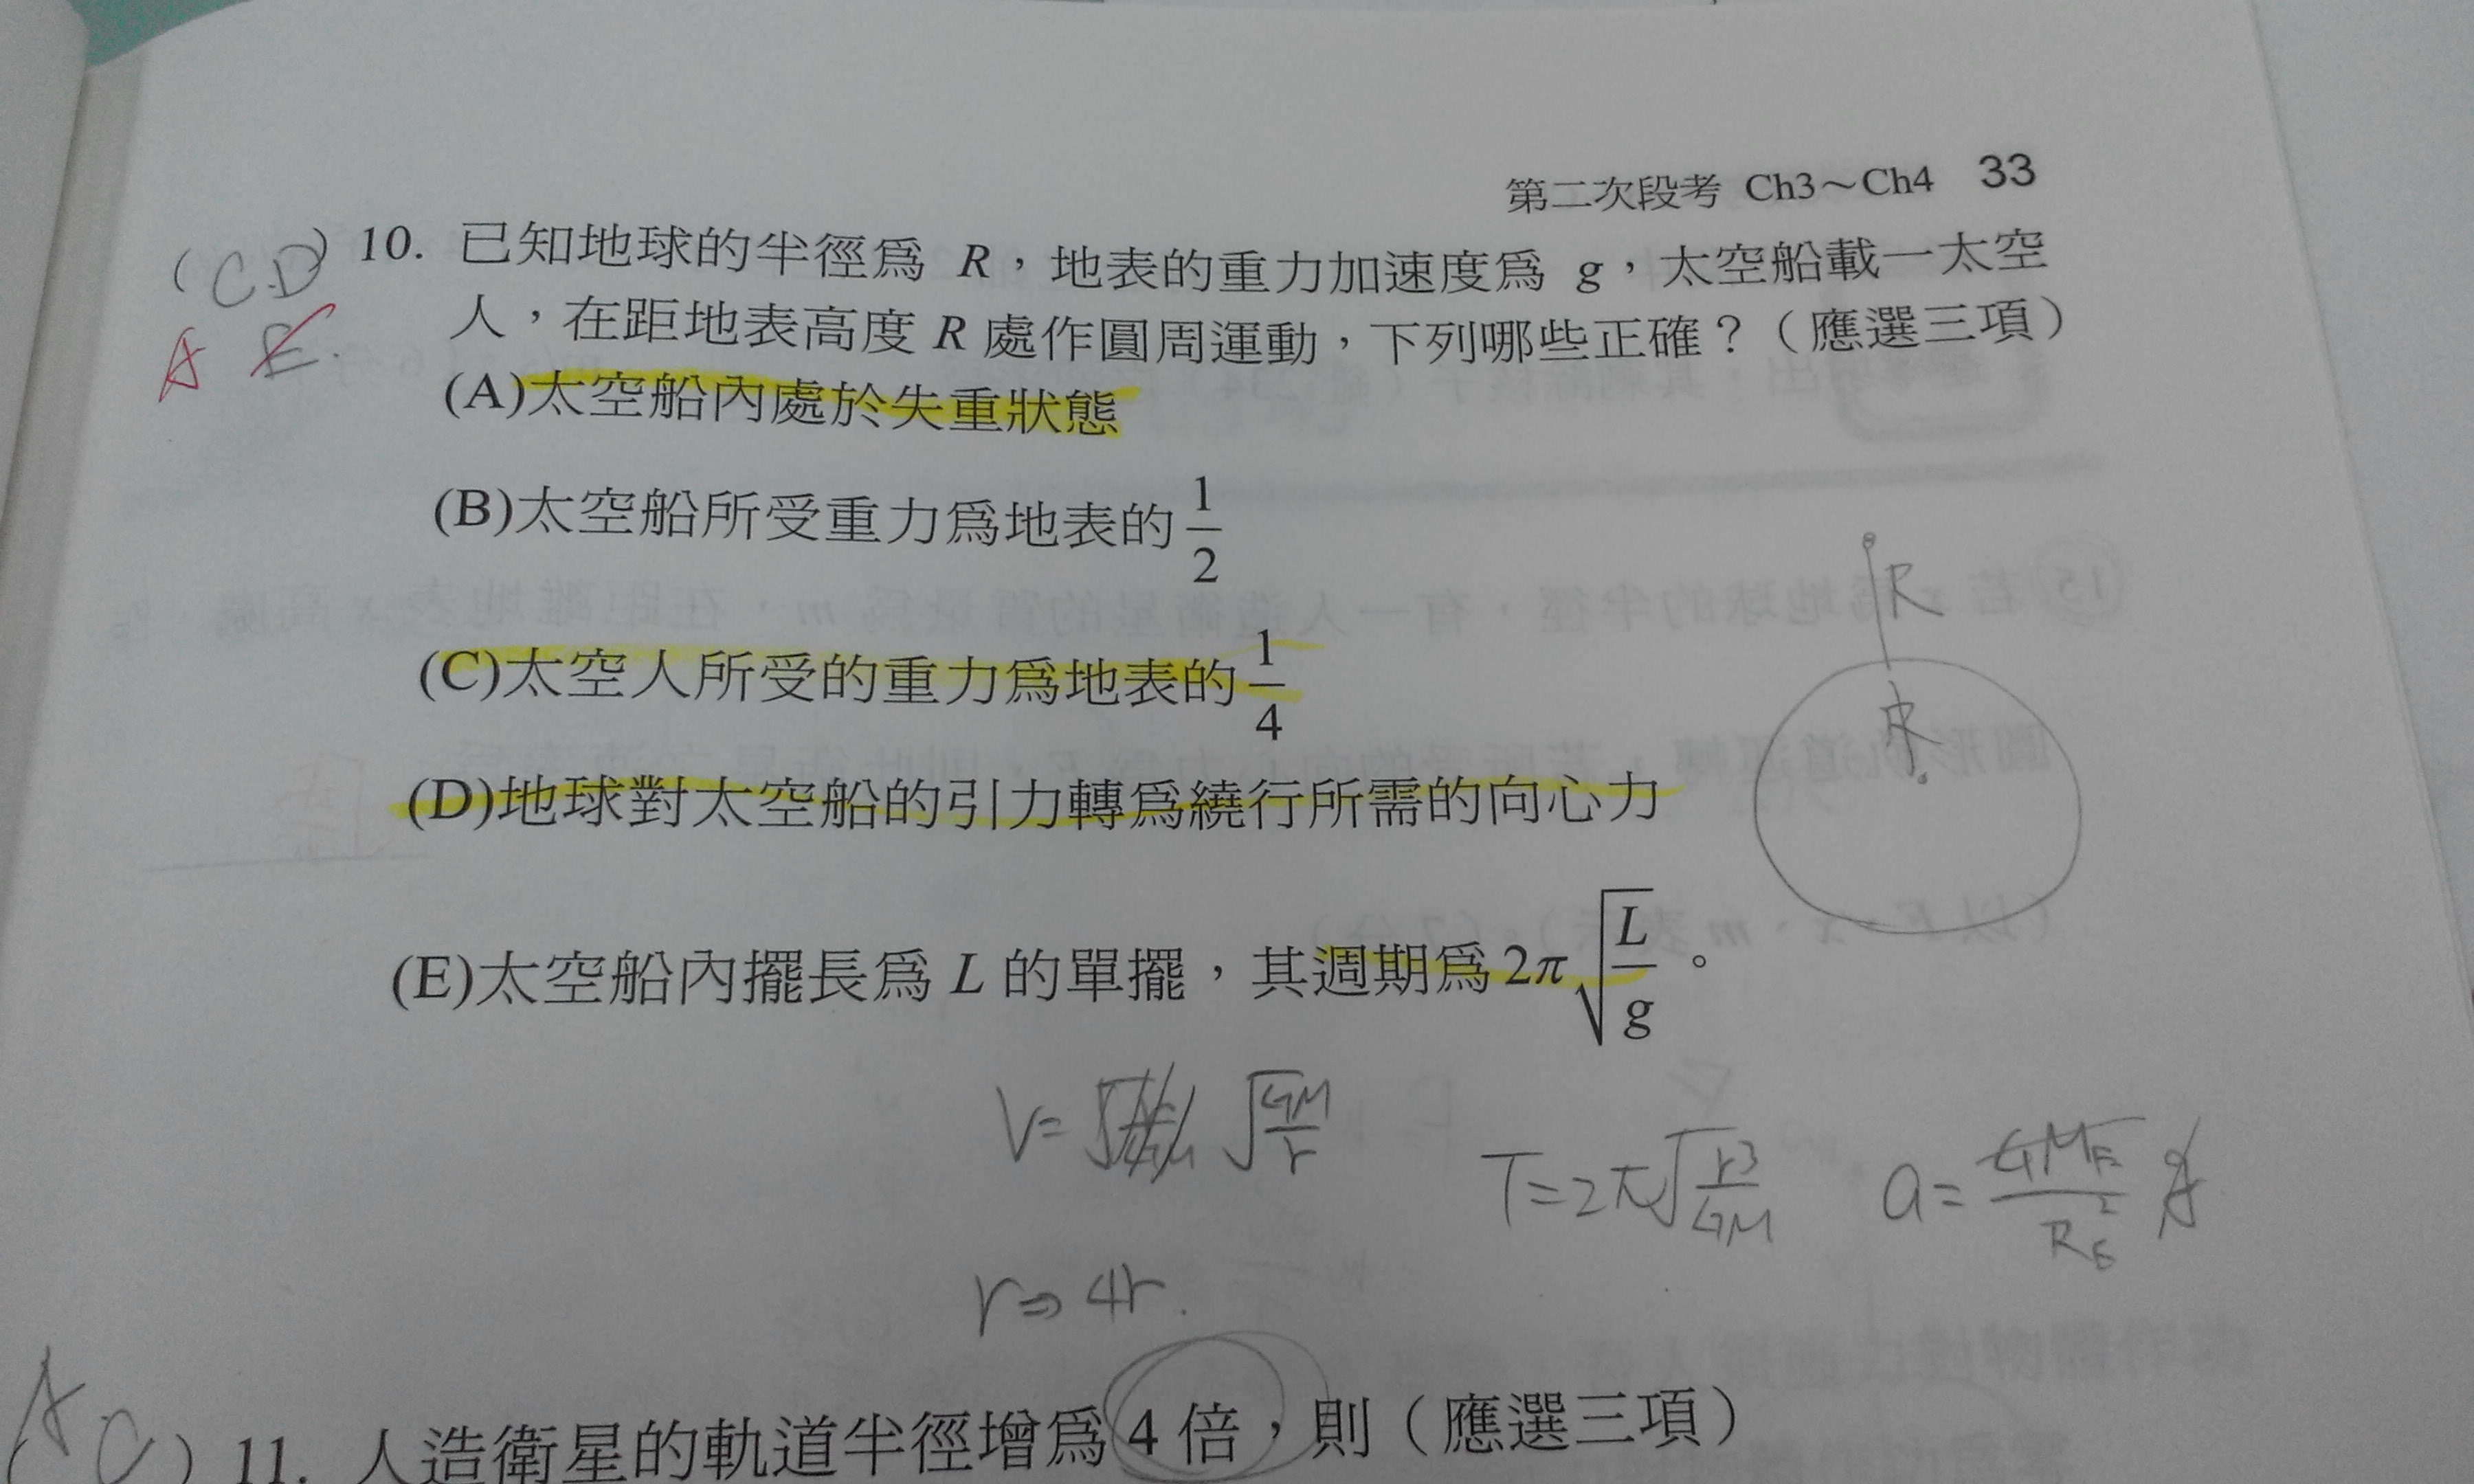 第二次段考 Ch3～Ch4 33
(C.D) 10. 已知地球的半徑爲 R，地表的重力加速度爲 g，太空船載一太空
A E. 人，在距地表高度 R 處作圓周運動，下列哪些正確？（應選三項）
(A)太空船內處於失重狀態
(B)太空船所受重力爲地表的 1/2
(C)太空人所受的重力爲地表的 1/4
(D)地球對太空船的引力轉爲繞行所需的向心力
(E)太空船內擺長爲 L 的單擺，其週期爲 2π√(L/g)。
R
R
V= √(GM/r)
T=2π√(r³/GM) a= GM_E/R_E²
r⇒4r.
(AC) 11. 人造衛星的軌道半徑增爲 4 倍，則（應選三項）